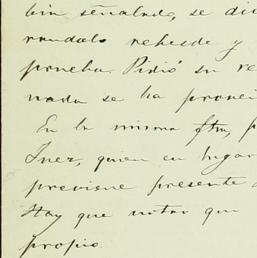 bin señalado, se di
randolo rebelde y
prueba. Pidió su re
nada se ha provei
En la misma fha, p
Inez, quien en lugar
previene presente
Hay que notar que
propio.